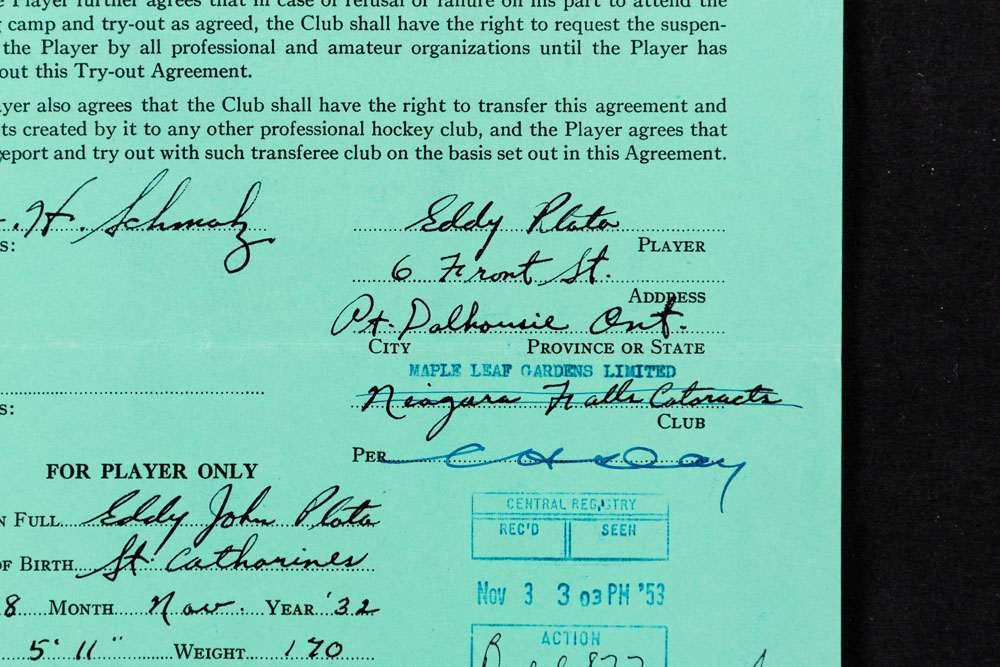 Player further agrees that in case of refusal or failure on his part to attend the
camp and try-out as agreed, the Club shall have the right to request the suspen-
the Player by all professional and amateur organizations until the Player has
out this Try-out Agreement.
yer also agrees that the Club shall have the right to transfer this agreement and
ts created by it to any other professional hockey club, and the Player agrees that
eport and try out with such transferee club on the basis set out in this Agreement.
H. Schmalz
s:
Eddy Plata
PLAYER
6 Front St.
ADDRESS
Pt. Dalhousie Ont.
CITY PROVINCE OR STATE
MAPLE LEAF GARDENS LIMITED
Niagara Falls Cataracts
s:
CLUB
PER C H Day
FOR PLAYER ONLY
N FULL Eddy John Plata
OF BIRTH St. Catharines
8 MONTH Nov. YEAR '32
5' 11" WEIGHT 170
CENTRAL REGISTRY
REC'D SEEN
NOV 3 3 03 PM '53
ACTION